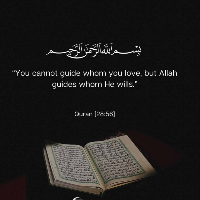 بسم الله الرحمن الرحيم
"You cannot guide whom you love, but Allah
guides whom He wills."
Quran [28:56]